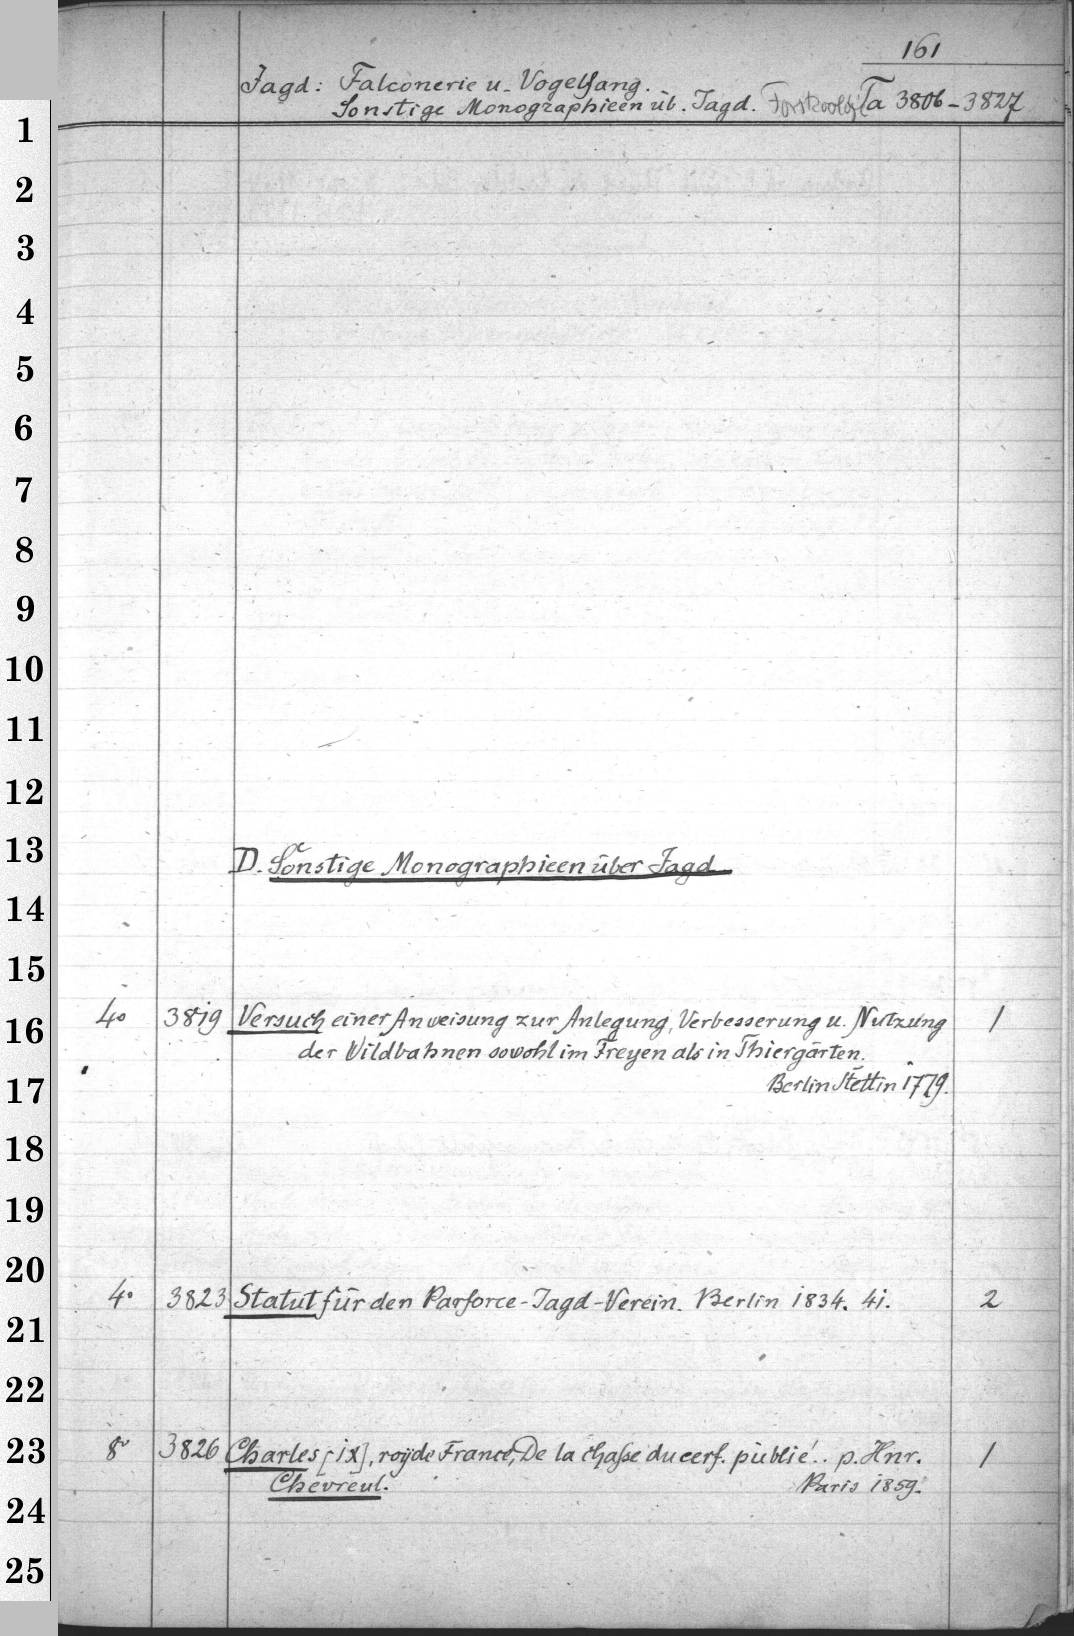 161
Jagd: Falconerie u. Vogelfang.
Sonstige Monographieen üb. Jagd. Ta 3806-3827
1
2
3
4
5
6
7
8
9
10
11
12
13
D. Sonstige Monographieen über Jagd
14
15
16
4° 3819 Versuch einer Anweisung zur Anlegung, Verbesserung u. Nutzung 1
der Wildbahnen sowohl im Freyen als in Thiergärten.
17
Berlin Stettin 1779.
18
19
20
4° 3823 Statut für den Parforce-Jagd-Verein. Berlin 1834. 4i. 2
21
22
23
8° 3826 Charles [IX], roy de France, De la chasse du cerf. publié.. p. Hnr. 1
Chevreul. Paris 1859.
24
25